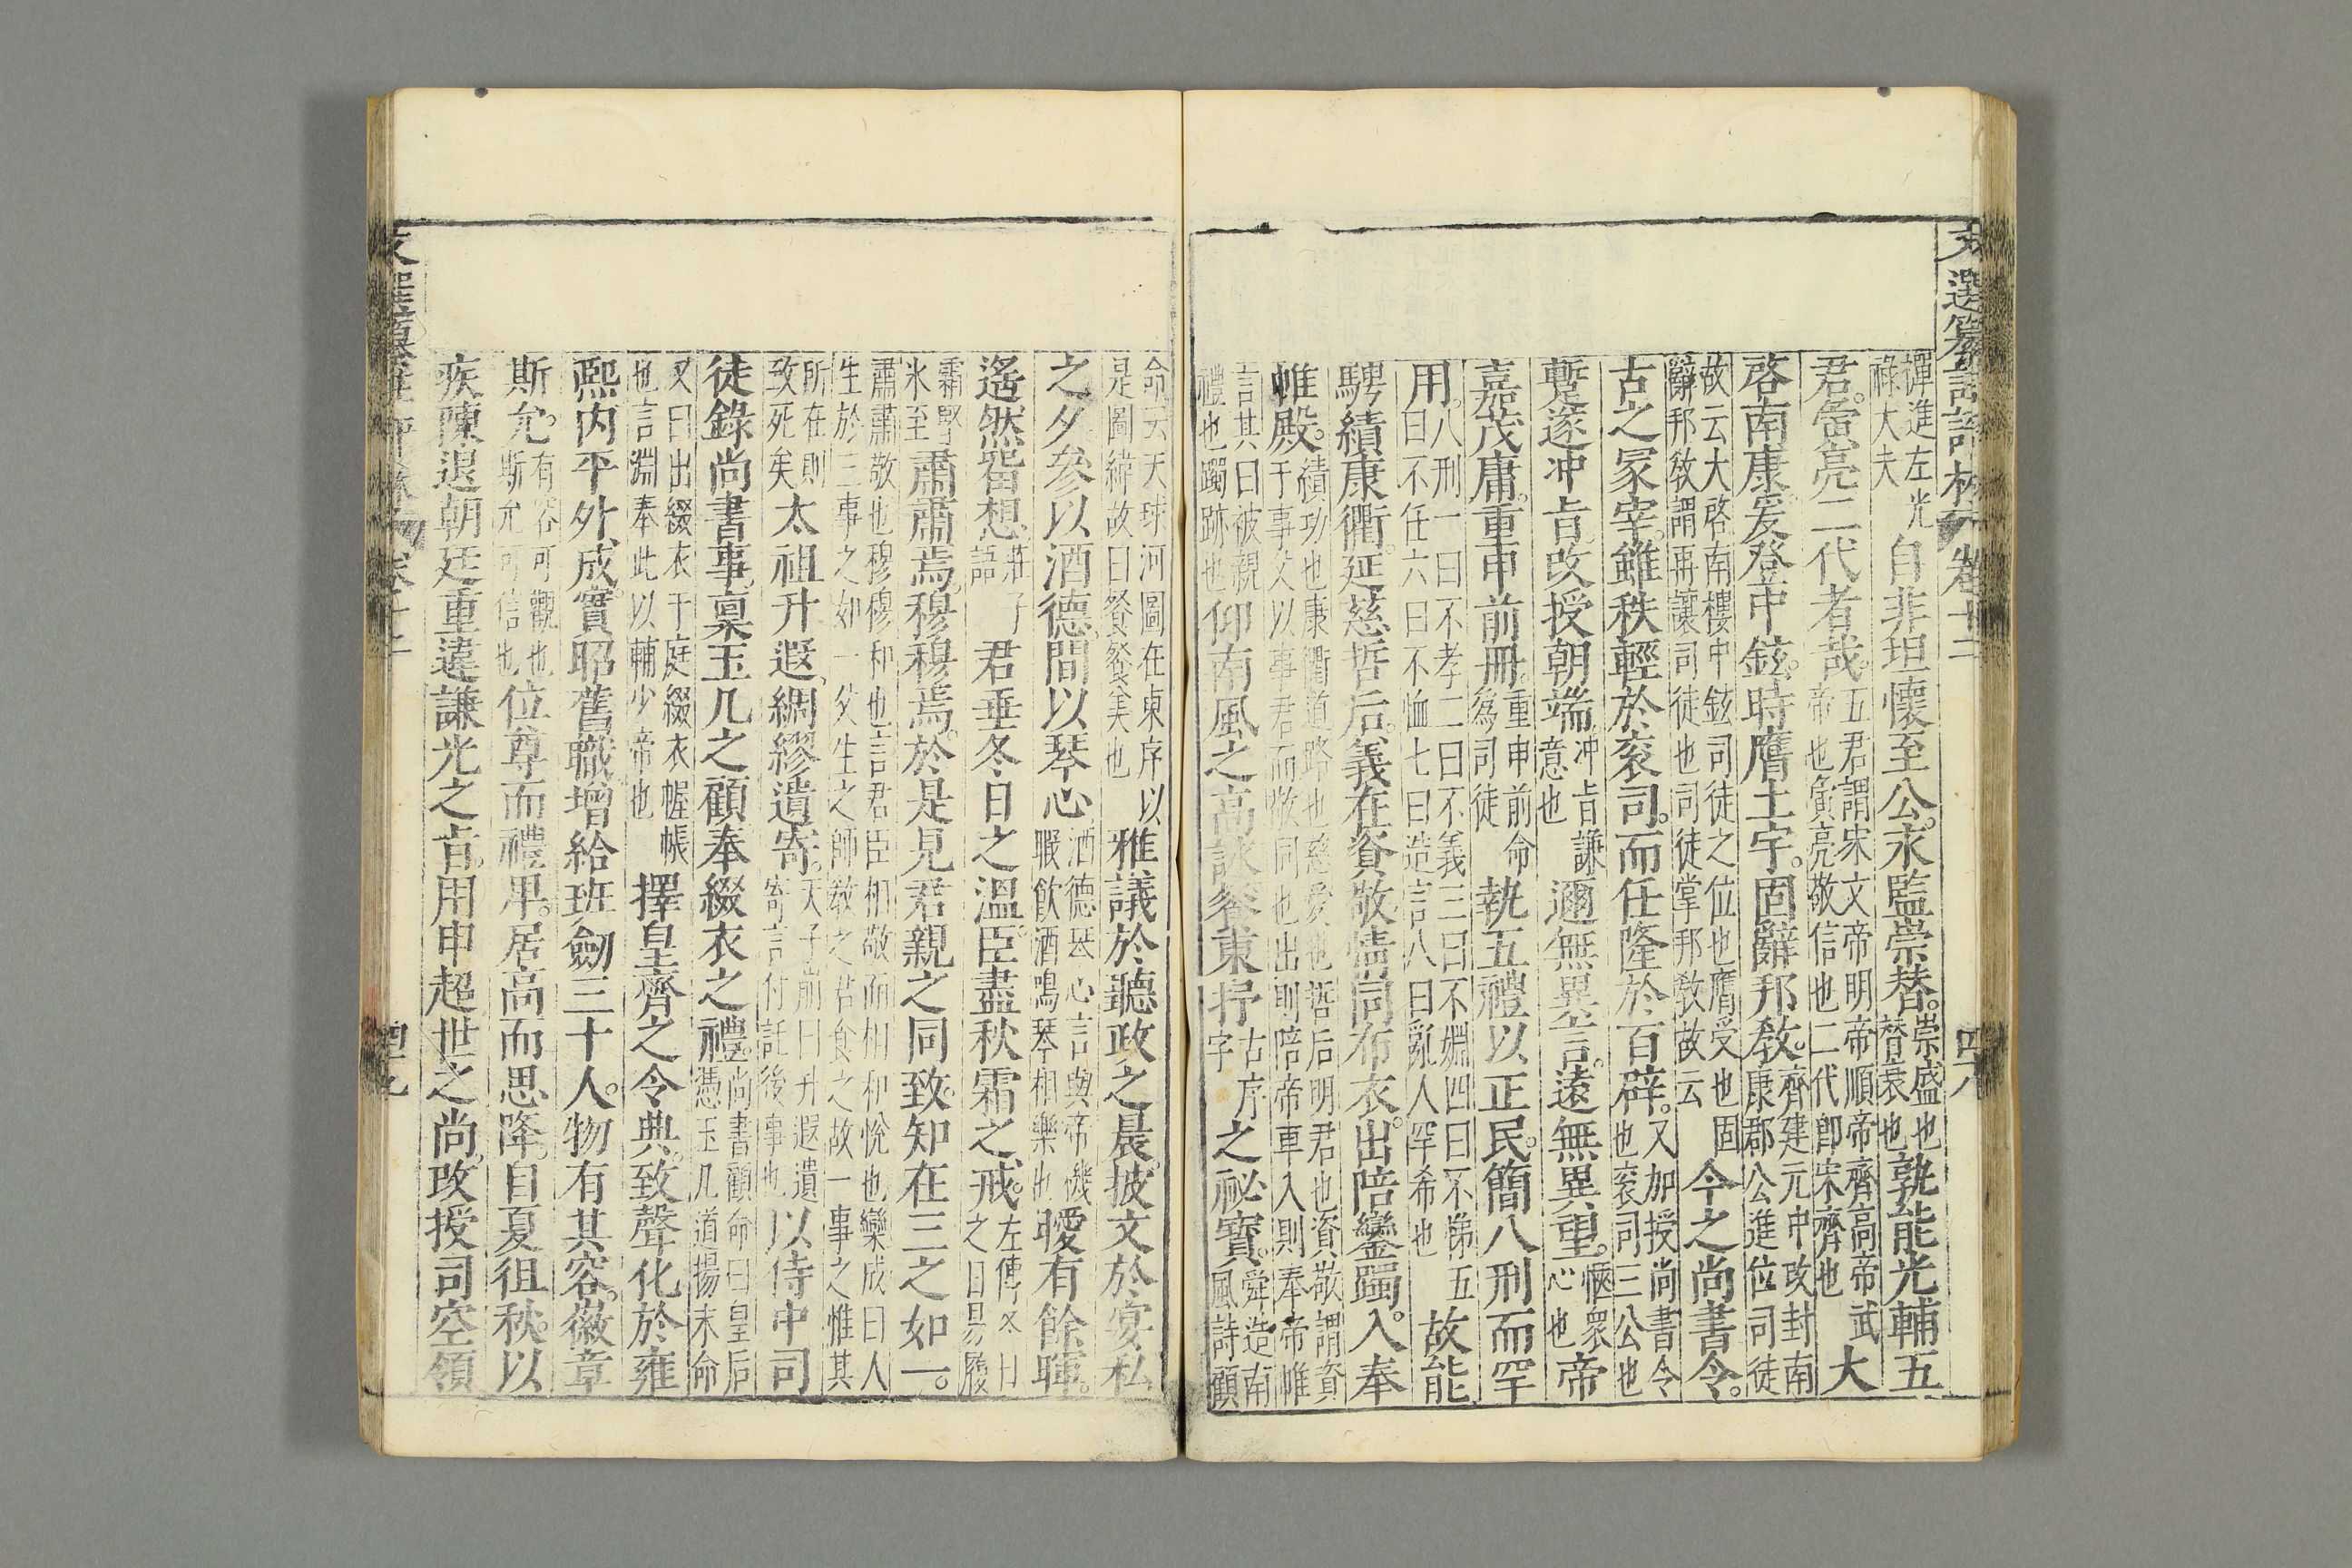 文選纂註評林 卷十二 四十八
禪進左光祿大夫自非坦懷至公永監崇替崇盛也替衰也孰能光輔五
君寅亮二代者哉五君謂宋文帝明帝順帝齊高帝武帝也寅亮敬信也二代卽宋齊也大
啓南康爰登中鉉時膺土宇固辭邦敎齊建元中改封南康郡公進位司徒
故云大啓南樓中鉉司徒之位也膺受也固辭邦敎謂再讓司徒也司徒掌邦敎故云今之尚書令
古之冢宰雖秩輕於袞司而任隆於百辟又加授尚書令也袞司三公也
蹔遂冲旨改授朝端冲旨謙意也邇無異言遠無異望愜衆心也帝
嘉茂庸重申前冊重申前命爲司徒執五禮以正民簡八刑而罕
用八刑一曰不孝二曰不義三曰不婣四曰不悌五曰不任六曰不恤七曰造言八曰亂人罕希也故能
騁績康衢延慈哲后義在資敬情同布衣出陪鑾躅入奉
帷殿績功也康衢道路也慈愛也哲后明君也資敬謂資于事父以事君而敬同也出則陪帝車入則奉帝帷
言其曰被親禮也躅跡也仰南風之高詠餐東抒古序字之祕寶舜造南風詩顧
命云天球河圖在東序以是圖緯故曰餐餐美也雅議於聽政之晨披文於宴私
之夕參以酒德間以琴心酒德琴心言與帝機暇飮酒鳴琴相樂也曖有餘暉
遙然畱想莊子語君垂冬日之溫臣盡秋霜之戒左傳冬日之日易履
霜堅氷至肅肅焉穆穆焉於是見君親之同致知在三之如一
肅肅敬也穆穆和也言君臣相敬而相和悅也欒成曰人生於三事之如一父生之師敎之君食之故一事之惟其
所在則致死矣太祖升遐綢繆遺寄天子崩曰升遐遺寄言付託後事也以侍中司
徒錄尚書事稟玉几之顧奉綴衣之禮尚書顧命曰皇后憑玉几道揚末命
又曰出綴衣于庭綴衣幄帳也言淵奉此以輔少帝也擇皇齊之令典致聲化於雍
熙內平外成實昭舊職增給班劒三十人物有其容徽章
斯允有容可觀也斯允可信也位尊而禮卑居高而思降自夏徂秋以
疾陳退朝廷重違謙光之旨用申超世之尚改授司空領
文選纂註評林 卷十二 四十九